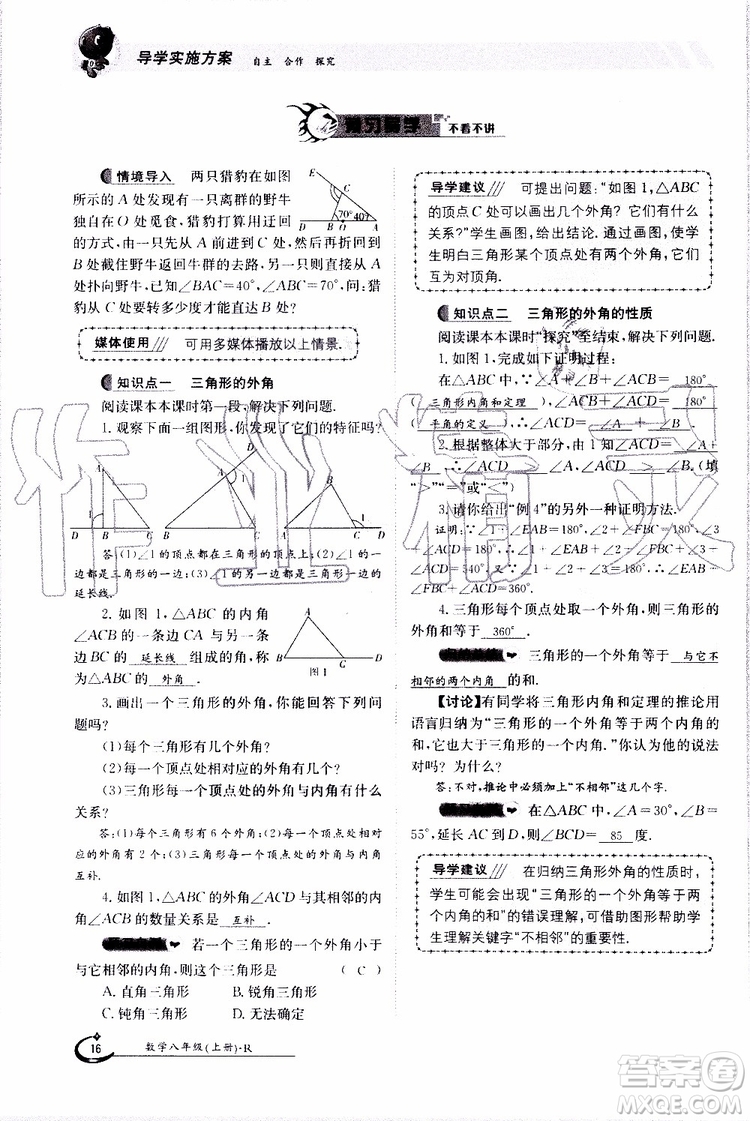 导学实施方案 自主 合作 探究
不看不讲
情境导入 两只猎豹在如图
所示的 A 处发现有一只野牛
独自在 O 处觅食,猎豹打算用迂回
的方式,由 A 处前进到 C 处,然后再折回到
B 处截住野牛返回牛群的去路,尽量靠近
处扑向野牛,已知∠BAC=40°,∠ABC=70°.问:猎
豹从 C 处要转多少度才能直达 B 处?
E
C
70°
40°
D B O A
媒体使用 可用多媒体播放以上情景.
知识点一 三角形的外角
阅读课本本课时第一段,解决下列问题.
1. 观察下面一组图形,你发现了它们的特征吗?
A
1
D B C
D
A
1
B C
B
1
A C D
答:(1)∠1 的顶点都在三角形的顶点上;(2)∠1 的一
边都是三角形的一边;(3)∠1
延长线.
2. 如图 1,△ABC 的内角
∠ACB 的一条边 CA 与另一条
边 BC 的 延长线 组成的角,称
为△ABC 的 外角 .
A
B C D
图 1
3. 画出一个三角形的外角,你能回答下列问
题吗?
(1)每个三角形有几个外角?
(2)每一个顶点处相对应的外角有几个?
(3)每一个顶点处的外角与内角有什么
关系?
答:(1)每个三角形有 6 个外角;(2)每一个顶点处相
对应的外角有 2 个;(3)每一个顶点处的外角与内角
互补.
4. 如图 1,△ABC 的外角∠ACD 与其相邻的内
角∠ACB 的数量关系是 互补 .
若一个三角形的一个外角小于
与它相邻的内角,则这个三角形是 ( C )
A. 直角三角形 B. 锐角三角形
C. 钝角三角形 D. 无法确定
导学建议 可提出问题:“如图 1,△ABC
的顶点 C 处可以画出几个外角? 它们有什么
关系?”学生画图,给出结论. 通过画图,使学
生明白三角形某个顶点处的外角有两个,它们
互为对顶角.
知识点二 三角形的外角的性质
阅读课本本课时“探究”至结束,解决下列问题.
1. 如图 1,完成如下证明过程:
在△ABC 中,∵∠A+∠B+∠ACB= 180°
( 三角形内角和定理 ),∠ACB+∠ACD= 180°
( 平角的定义 ),∴∠ACD=∠ A +∠ B .
2. 根据整体大于部分,由 1 知,∠ACD=∠A+
∠B ∴∠ACD ∠A,∠ACD ∠B.(填
“>”“=”或“<”)
3. 请你给出“例 4”的另一种证明方法.
证明:∵∠1+∠EAB=180°,∠2+∠FBC=180°,
∠3+∠ACD=180°,∴∠1+∠EAB+∠2+∠FBC+∠3+
∠ACD=540°,又∵∠1+∠2+∠3=180°,∴∠EAB+
∠FBC+∠ACD=360°.
4. 三角形每个顶点处取一个外角,则三角形的
外角和等于 360° .
三角形的一个外角等于 与它不
相邻的两个内角 的和.
【讨论】有同学将三角形内角和定理的推论用
语言归纳为“三角形的一个外角等于两个内角的
和”,“三角形的一个外角大于三角形的一个内角.”你认为他的说法
对吗? 为什么?
答:不对,推论中必须加上“不相邻”这几个字.
在△ABC 中,∠A=30°,∠B=
55°,延长 AC 到 D,则∠BCD= 85 度.
导学建议 在归纳三角形外角的性质时,
学生可能会出现“三角形的一个外角等于两
个内角的和”的错误理解,可借助图形帮助学
生理解关键字“不相邻”的重要性.
16 数学八年级(上册)-R
答案圈
MXQE.COM